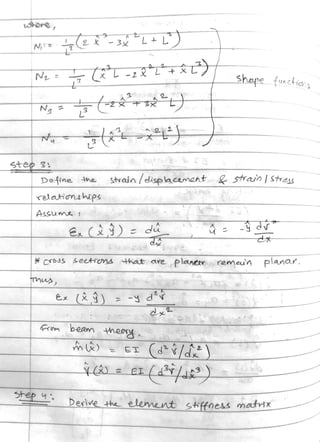 where,
N₁ = 1/L³ (2x̂³ - 3x̂²L + L³)
N₂ = 1/L³ (x̂³L - 2x̂²L² + x̂L³)
shape functions
N₃ = 1/L³ (-2x̂³ + 3x̂²L)
N₄ = 1/L³ (x̂³L - x̂²L²)
Step 3:
Define the strain/displacement & strain/stress
relationships
Assume:
εx (x̂ ŷ) = dû/dx̂ , û = -ŷ dv̂/dx̂
* cross sections that are planar remain planar.
Thus,
εx (x̂ ŷ) = -y d²v̂/dx²
From beam theory.
m̂(x̂) = EI (d²v̂/dx̂²)
V̂(x̂) = EI (d³v̂/dx̂³)
Step 4:
Derive the element stiffness matrix